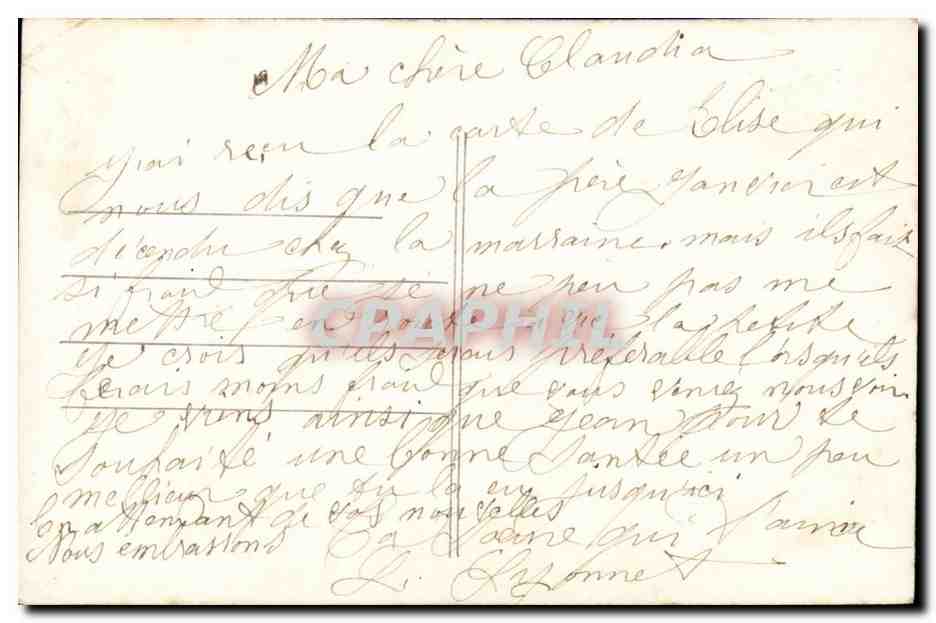 Ma chère Claudia
j'ai reçu la carte de Elise qui
nous dis que la père Janvier est
décendu chez la marraine. mais ils fait
si froid que je ne peu pas me
mettre en route avec la petite
je crois qu'ils serais préférable lorsqu'ils
ferais moins froid que vous venez nous voir
je viens ainsi que Jean pour te
souhaité une bonne Santée un peu
meilleur que tu la eu jusqu'ici
En attendant de vos nouvelles
Nous embrassons Ta Soeur qui t'aime
CPAPHIL